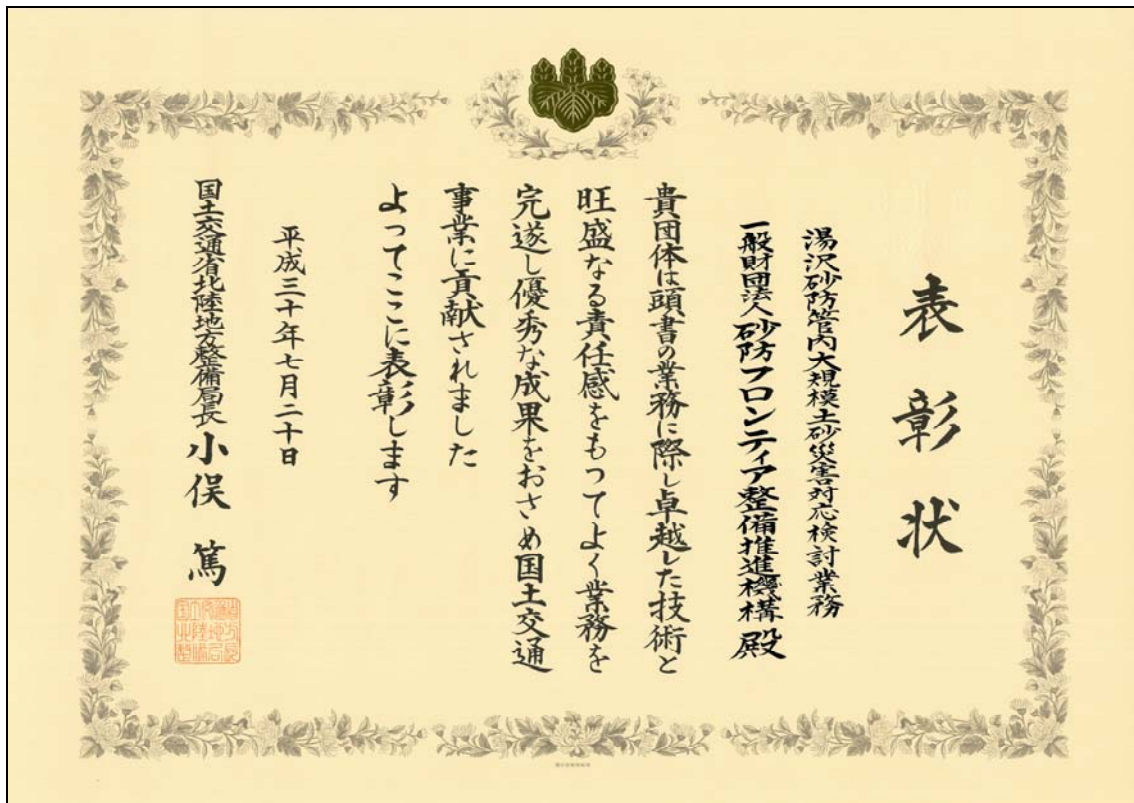 表彰状
湯沢砂防管内大規模土砂災害対応検討業務
一般財団法人 砂防フロンティア整備推進機構 殿
貴団体は頭書の業務に際し卓越した技術と
旺盛なる責任感をもつてよく業務を
完遂し優秀な成果をおさめ国土交通
事業に貢献されました
よってここに表彰します
平成三十年七月二十日
国土交通省北陸地方整備局長 小俣 篤